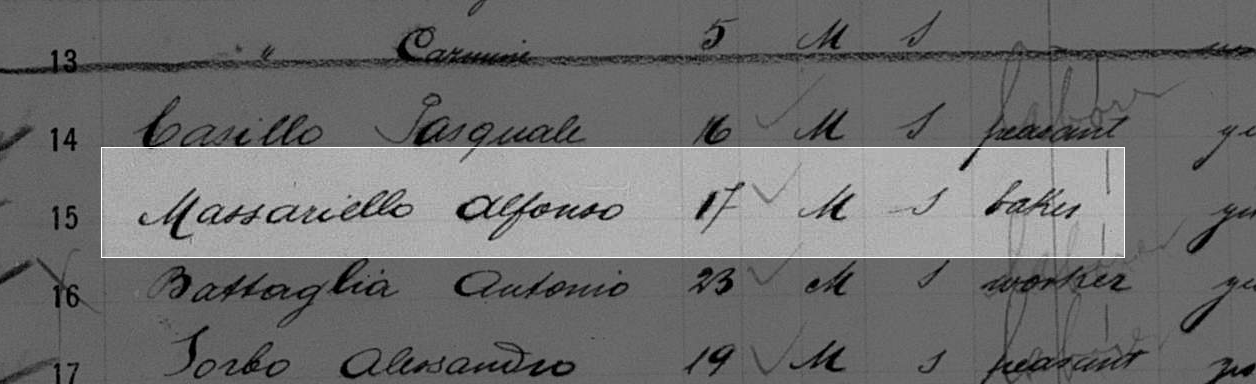 13 " Carmine 5 M S
14 Casillo Pasquale 16 M S peasant
15 Massariello Alfonso 17 M S baker
16 Battaglia Antonio 23 M S worker
17 Sorbo Alessandro 19 M S peasant